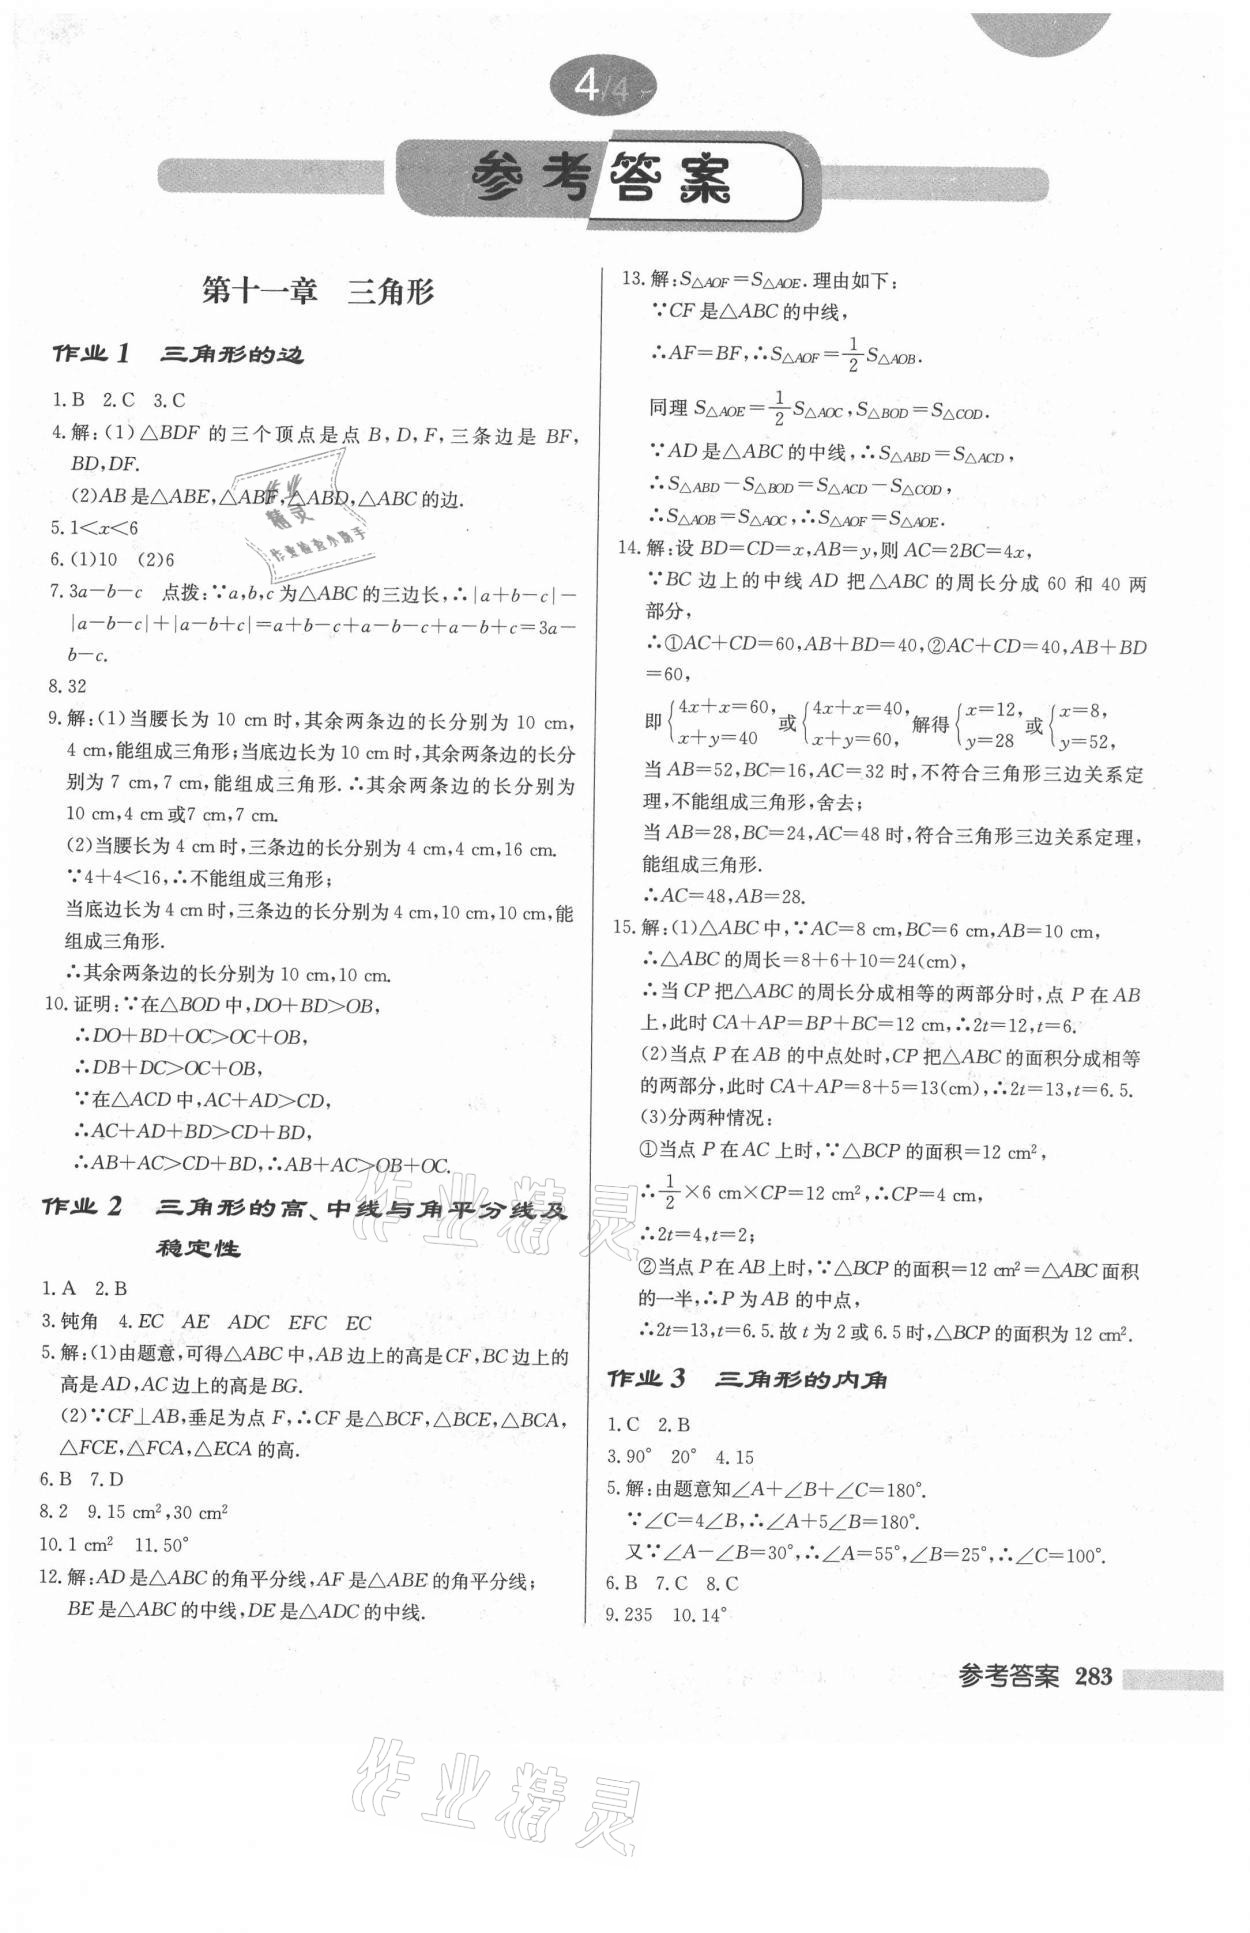 4/4
参考答案
第十一章 三角形
作业1 三角形的边
1.B 2.C 3.C
4.解:(1)△BDF 的三个顶点是点 B,D,F,三条边是 BF,
BD,DF.
(2)AB是△ABE,△ABF,△ABD,△ABC的边.
5.1<x<6
6.(1)10 (2)6
7.3a-b-c 点拨:∵a,b,c为△ABC的三边长,∴|a+b-c|-
|a-b-c|+|a-b+c|=a+b-c+a-b-c+a-b+c=3a-
b-c.
8.32
9.解:(1)当腰长为 10 cm时,其余两条边的长分别为 10 cm,
4 cm,能组成三角形;当底边长为10 cm时,其余两条边的长分
别为 7 cm,7 cm,能组成三角形.∴其余两条边的长分别为
10 cm,4 cm或7 cm,7 cm.
(2)当腰长为 4 cm时,三条边的长分别为 4 cm,4 cm,16 cm.
∵4+4<16,∴不能组成三角形;
当底边长为4 cm时,三条边的长分别为4 cm,10 cm,10 cm,能
组成三角形.
∴其余两条边的长分别为10 cm,10 cm.
10.证明:∵在△BOD中,DO+BD>OB,
∴DO+BD+OC>OC+OB,
∴DB+DC>OC+OB,
∵在△ACD中,AC+AD>CD,
∴AC+AD+BD>CD+BD,
∴AB+AC>CD+BD,∴AB+AC>OB+OC.
作业2 三角形的高、中线与角平分线及
稳定性
1.A 2.B
3.钝角 4.EC AE ADC EFC EC
5.解:(1)由题意,可得△ABC中,AB边上的高是CF,BC边上的
高是AD,AC边上的高是BG.
(2)∵CF⊥AB,垂足为点 F,∴CF是△BCF,△BCE,△BCA,
△FCE,△FCA,△ECA的高.
6.B 7.D
8.2 9.15 cm²,30 cm²
10.1 cm² 11.50°
12.解:AD是△ABC的角平分线,AF是△ABE的角平分线;
BE是△ABC的中线,DE是△ADC的中线.
13.解:S△AOF=S△AOE.理由如下:
∵CF是△ABC的中线,
∴AF=BF,∴S△AOF=1/2 S△AOB.
同理 S△AOE=1/2 S△AOC,S△BOD=S△COD.
∵AD是△ABC的中线,∴S△ABD=S△ACD,
∴S△ABD-S△BOD=S△ACD-S△COD,
∴S△AOB=S△AOC,∴S△AOF=S△AOE.
14.解:设 BD=CD=x,AB=y,则 AC=2BC=4x,
∵BC 边上的中线 AD 把△ABC的周长分成 60 和 40 两
部分,
∴①AC+CD=60,AB+BD=40,②AC+CD=40,AB+BD
=60,
即{4x+x=60, x+y=40 或{4x+x=40, x+y=60, 解得{x=12, y=28 或{x=8, y=52,
当 AB=52,BC=16,AC=32 时,不符合三角形三边关系定
理,不能组成三角形,舍去;
当 AB=28,BC=24,AC=48 时,符合三角形三边关系定理,
能组成三角形.
∴AC=48,AB=28.
15.解:(1)△ABC中,∵AC=8 cm,BC=6 cm,AB=10 cm,
∴△ABC的周长=8+6+10=24(cm),
∴当 CP把△ABC的周长分成相等的两部分时,点 P 在 AB
上,此时 CA+AP=BP+BC=12 cm,∴2t=12,t=6.
(2)当点 P 在 AB 的中点处时,CP把△ABC的面积分成相等
的两部分,此时 CA+AP=8+5=13(cm),∴2t=13,t=6.5.
(3)分两种情况:
①当点 P在 AC 上时,∵△BCP的面积=12 cm²,
∴1/2×6 cm×CP=12 cm²,∴CP=4 cm,
∴2t=4,t=2;
②当点P在AB上时,∵△BCP的面积=12 cm²=△ABC面积
的一半,∴P为AB的中点,
∴2t=13,t=6.5.故t为2或6.5时,△BCP的面积为12 cm².
作业3 三角形的内角
1.C 2.B
3.90° 20° 4.15
5.解:由题意知∠A+∠B+∠C=180°.
∵∠C=4∠B,∴∠A+5∠B=180°.
又∵∠A-∠B=30°,∴∠A=55°,∠B=25°,∴∠C=100°.
6.B 7.C 8.C
9.235 10.14°
参考答案 283
作业精灵
作业检查小助手
作业精灵
作业精灵